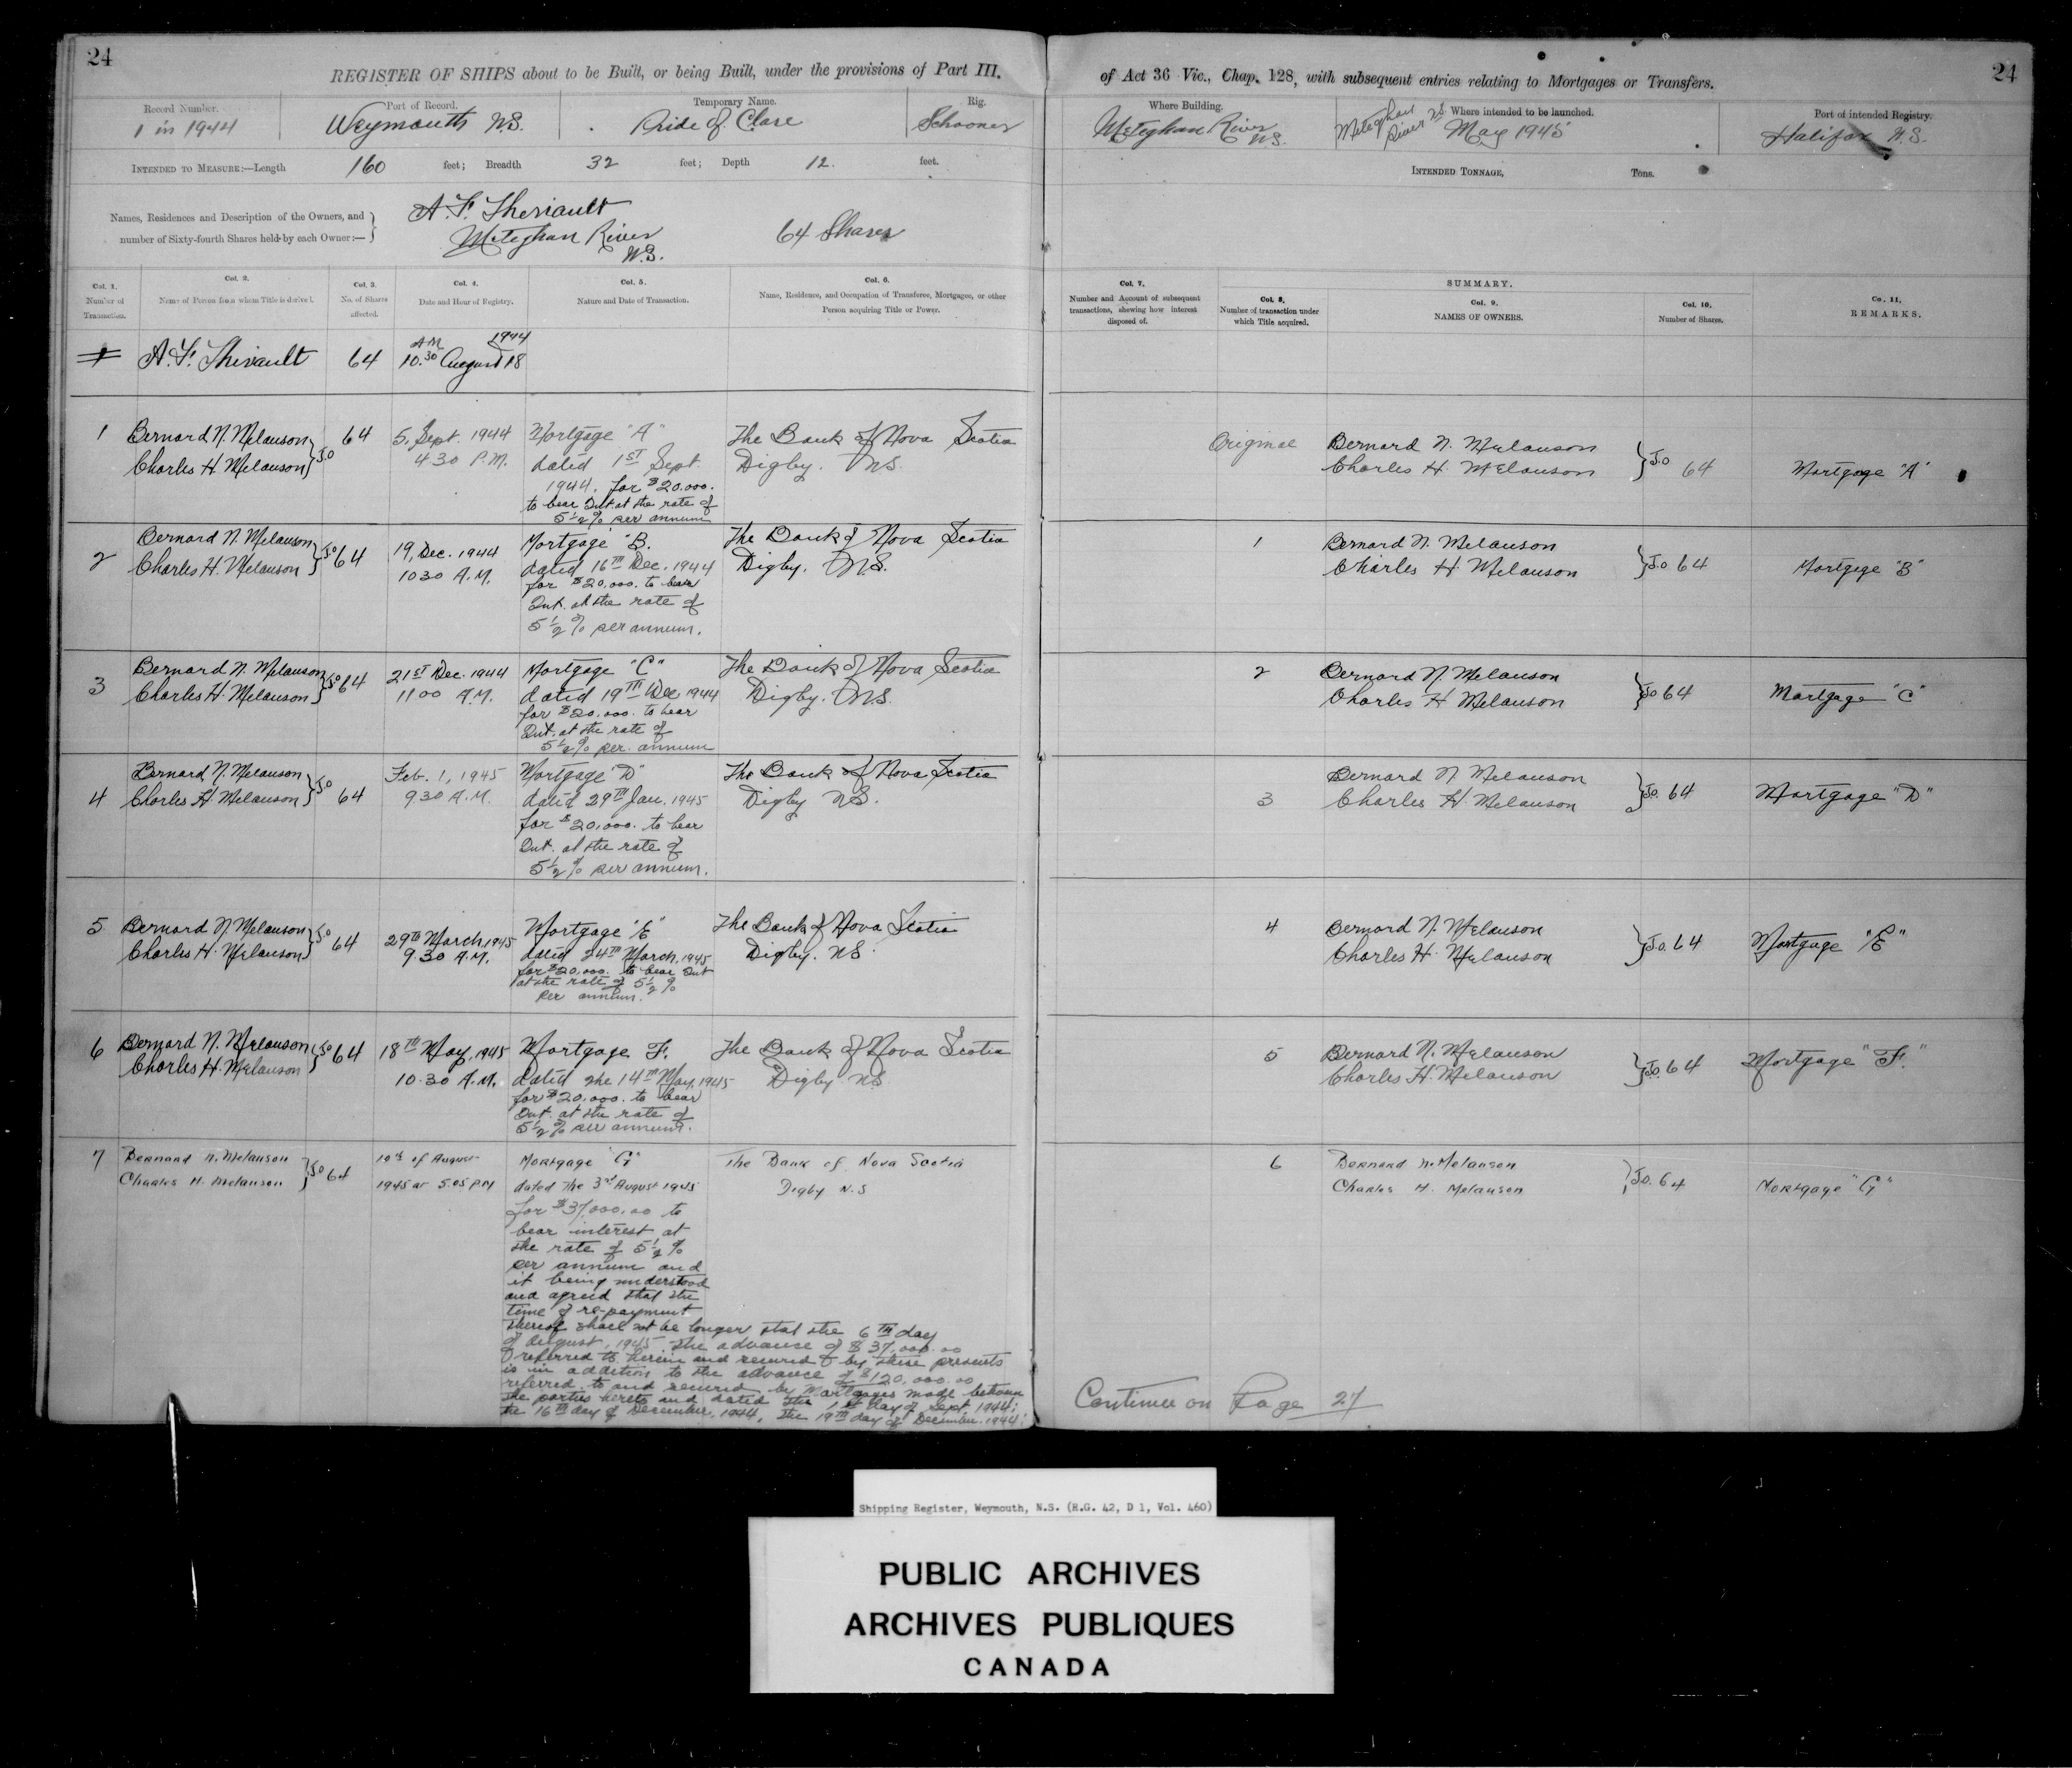 24
REGISTER OF SHIPS about to be Built, or being Built, under the provisions of Part III.
Record Number.
1 in 1944
Port of Record.
Weymouth N.S.
Temporary Name.
Pride of Clare
Rig.
Schooner
INTENDED TO MEASURE:—Length 160 feet; Breadth 32 feet; Depth 12. feet.
Names, Residences and Description of the Owners, and
number of Sixty-fourth Shares held by each Owner:—
A. F. Theriault
Meteghan River
N.S.
64 Shares
Col. 1.
Number of
Transaction.
Col. 2.
Name of Person from whom Title is derived.
Col. 3.
No. of Shares
affected.
Col. 4.
Date and Hour of Registry.
Col. 5.
Nature and Date of Transaction.
Col. 6.
Name, Residence, and Occupation of Transferee, Mortgagee, or other
Person acquiring Title or Power.
1 A. F. Theriault 64 A.M. 1944
10.30 August 18
1 Bernard N. Melanson
Charles H. Melanson } J.O 64
5, Sept. 1944
4 30 P.M.
Mortgage "A"
dated 1st Sept.
1944. for $20.000.
to bear Int. at the rate of
5 1/2 % per annum
The Bank of Nova Scotia
Digby. N.S.
2 Bernard N. Melanson
Charles H. Melanson } J.O 64
19, Dec. 1944
10 30 A.M.
Mortgage "B.
dated 16th Dec. 1944
for $20,000. to bear
Int. at the rate of
5 1/2 % per annum.
The Bank of Nova Scotia
Digby. N.S.
3 Bernard N. Melanson
Charles H. Melanson } J.O 64
21st Dec. 1944
11 00 A.M.
Mortgage "C"
dated 19th Dec 1944
for $20,000. to bear
Int. at the rate of
5 1/2 % per annum
The Bank of Nova Scotia
Digby. N.S.
4 Bernard N. Melanson
Charles H. Melanson } J.O 64
Feb. 1, 1945
9 30 A.M.
Mortgage "D"
dated 29th Jan. 1945
for $20,000. to bear
Int. at the rate of
5 1/2 % per annum.
The Bank of Nova Scotia
Digby N.S.
5 Bernard N. Melanson
Charles H. Melanson } J.O 64
29th March, 1945
9.30 A.M.
Mortgage "E"
dated 24th March, 1945
for $20,000. to bear Int
at the rate of 5 1/2 %
per annum.
The Bank of Nova Scotia
Digby. N.S.
6 Bernard N. Melanson
Charles H. Melanson } J.O 64
18th May, 1945
10.30 A.M.
Mortgage F.
dated the 14th May, 1945
for $20,000. to bear
Int. at the rate of
5 1/2 % per annum.
The Bank of Nova Scotia
Digby N.S
7 Bernard N. Melanson
Charles H. Melanson } J.O 64
10th of August
1945 at 5.05 P.M
Mortgage "G"
dated the 3rd August 1945
for $37,000.00 to
bear interest at
the rate of 5 1/2 %
per annum and
it being understood
and agreed that the
time of re-payment
thereof shall not be longer that the 6th day
of August, 1945 the advance of $37,000.00
referred to herein and secured by these presents
is in addition to the advance of $120,000.00
referred to and secured by Mortgages made between
the parties hereto and dated the 1st day of Sept, 1944;
the 16th day of December, 1944, the 19th day of December. 1944;
The Bank of Nova Scotia
Digby N.S
24
of Act 36 Vic., Chap. 128, with subsequent entries relating to Mortgages or Transfers.
Where Building.
Meteghan River
N.S.
Where intended to be launched.
Meteghan
River N.S. May 1945
Port of intended Registry.
Halifax N.S.
INTENDED TONNAGE, Tons.
Col. 7.
Number and Account of subsequent
transactions, shewing how interest
disposed of.
SUMMARY.
Col. 8.
Number of transaction under
which Title acquired.
Col. 9.
NAMES OF OWNERS.
Col. 10.
Number of Shares.
Co. 11,
REMARKS.
Original Bernard N. Melanson
Charles H. Melanson } J.O 64 Mortgage "A"
1 Bernard N. Melanson
Charles H. Melanson } J.O 64 Mortgage "B"
2 Bernard N. Melanson
Charles H Melanson } J.O 64 Mortgage "C"
3 Bernard N Melanson
Charles H. Melanson } J.O. 64 Mortgage "D"
4 Bernard N. Melanson
Charles H. Melanson } J.O. 64 Mortgage "E"
5 Bernard N. Melanson
Charles H. Melanson } J.O. 64 Mortgage "F."
6 Bernard N. Melanson
Charles H. Melanson } J.O. 64 Mortgage "G"
Continue on Page 27
Shipping Register, Weymouth, N.S. (R.G. 42, D 1, Vol. 460)
PUBLIC ARCHIVES
ARCHIVES PUBLIQUES
CANADA